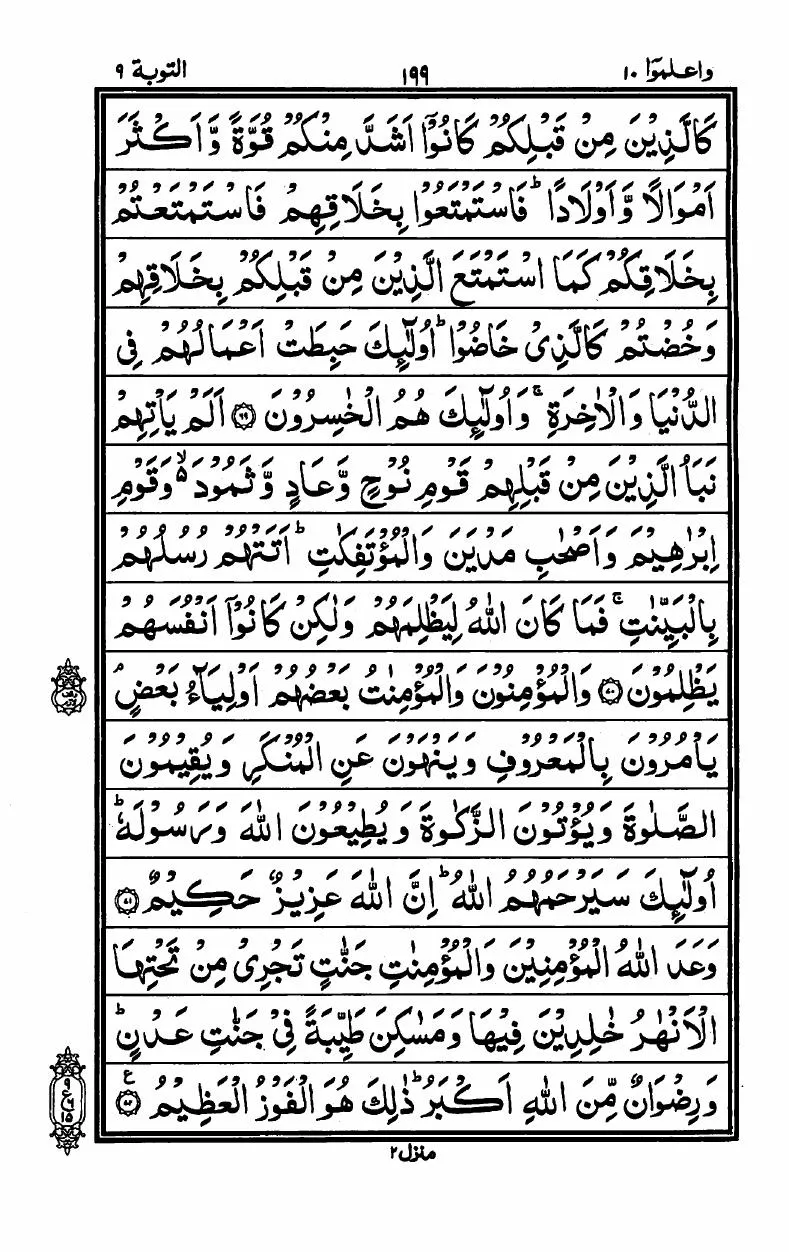 واعلموٓا ١٠ ١٩٩ التوبة ٩
كَالَّذِيْنَ مِنْ قَبْلِكُمْ كَانُوْۤا اَشَدَّ مِنْكُمْ قُوَّةً وَّ اَكْثَرَ
اَمْوَالًا وَّ اَوْلَادًا ؕ فَاسْتَمْتَعُوْا بِخَلَاقِهِمْ فَاسْتَمْتَعْتُمْ
بِخَلَاقِكُمْ كَمَا اسْتَمْتَعَ الَّذِيْنَ مِنْ قَبْلِكُمْ بِخَلَاقِهِمْ
وَ خُضْتُمْ كَالَّذِيْ خَاضُوْا ؕ اُولٰٓئِكَ حَبِطَتْ اَعْمَالُهُمْ فِي
الدُّنْيَا وَ الْاٰخِرَةِ ۚ وَ اُولٰٓئِكَ هُمُ الْخٰسِرُوْنَ ۝٦٩ اَلَمْ يَاْتِهِمْ
نَبَاُ الَّذِيْنَ مِنْ قَبْلِهِمْ قَوْمِ نُوْحٍ وَّ عَادٍ وَّ ثَمُوْدَ ۙ۬ وَ قَوْمِ
اِبْرٰهِيْمَ وَ اَصْحٰبِ مَدْيَنَ وَ الْمُؤْتَفِكٰتِ ؕ اَتَتْهُمْ رُسُلُهُمْ
بِالْبَيِّنٰتِ ۚ فَمَا كَانَ اللّٰهُ لِيَظْلِمَهُمْ وَ لٰكِنْ كَانُوْۤا اَنْفُسَهُمْ
يَظْلِمُوْنَ ۝٧٠ وَ الْمُؤْمِنُوْنَ وَ الْمُؤْمِنٰتُ بَعْضُهُمْ اَوْلِيَآءُ بَعْضٍ ۘ
يَاْمُرُوْنَ بِالْمَعْرُوْفِ وَ يَنْهَوْنَ عَنِ الْمُنْكَرِ وَ يُقِيْمُوْنَ
الصَّلٰوةَ وَ يُؤْتُوْنَ الزَّكٰوةَ وَ يُطِيْعُوْنَ اللّٰهَ وَ رَسُوْلَهٗ ؕ
اُولٰٓئِكَ سَيَرْحَمُهُمُ اللّٰهُ ؕ اِنَّ اللّٰهَ عَزِيْزٌ حَكِيْمٌ ۝٧١
وَعَدَ اللّٰهُ الْمُؤْمِنِيْنَ وَ الْمُؤْمِنٰتِ جَنّٰتٍ تَجْرِيْ مِنْ تَحْتِهَا
الْاَنْهٰرُ خٰلِدِيْنَ فِيْهَا وَ مَسٰكِنَ طَيِّبَةً فِيْ جَنّٰتِ عَدْنٍ ؕ
وَ رِضْوَانٌ مِّنَ اللّٰهِ اَكْبَرُ ؕ ذٰلِكَ هُوَ الْفَوْزُ الْعَظِيْمُ ۝٧٢ ع
٩
ع
٦
١٥
منزل ٢